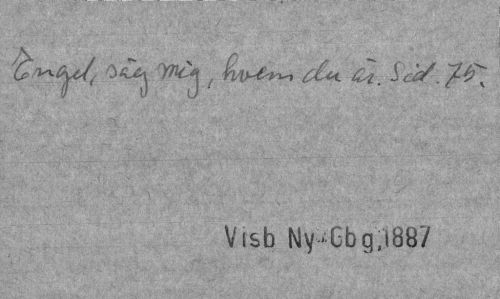 Engel, säg mig, hvem du är. Sid. 75.
Visb Ny-Gbg, 1887